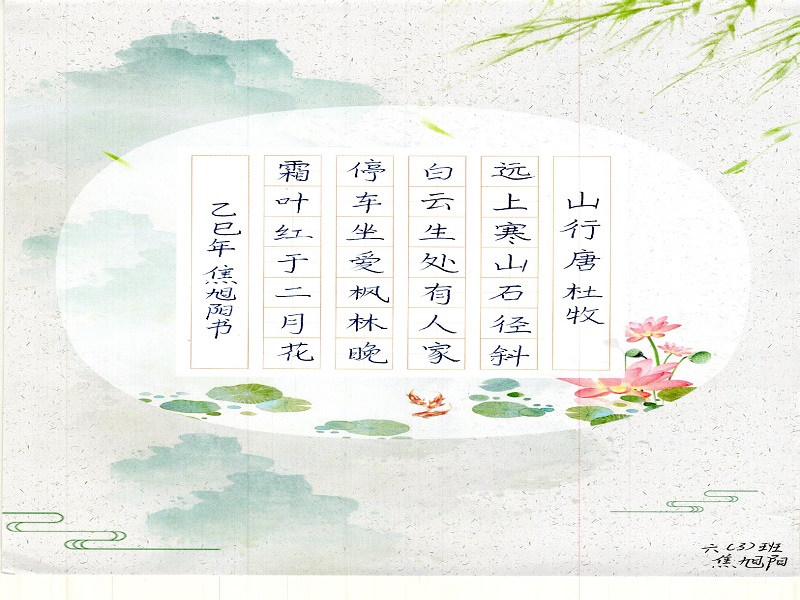 山行唐杜牧
远上寒山石径斜
白云生处有人家
停车坐爱枫林晚
霜叶红于二月花
乙巳年焦旭阳书
六（3）班
焦旭阳